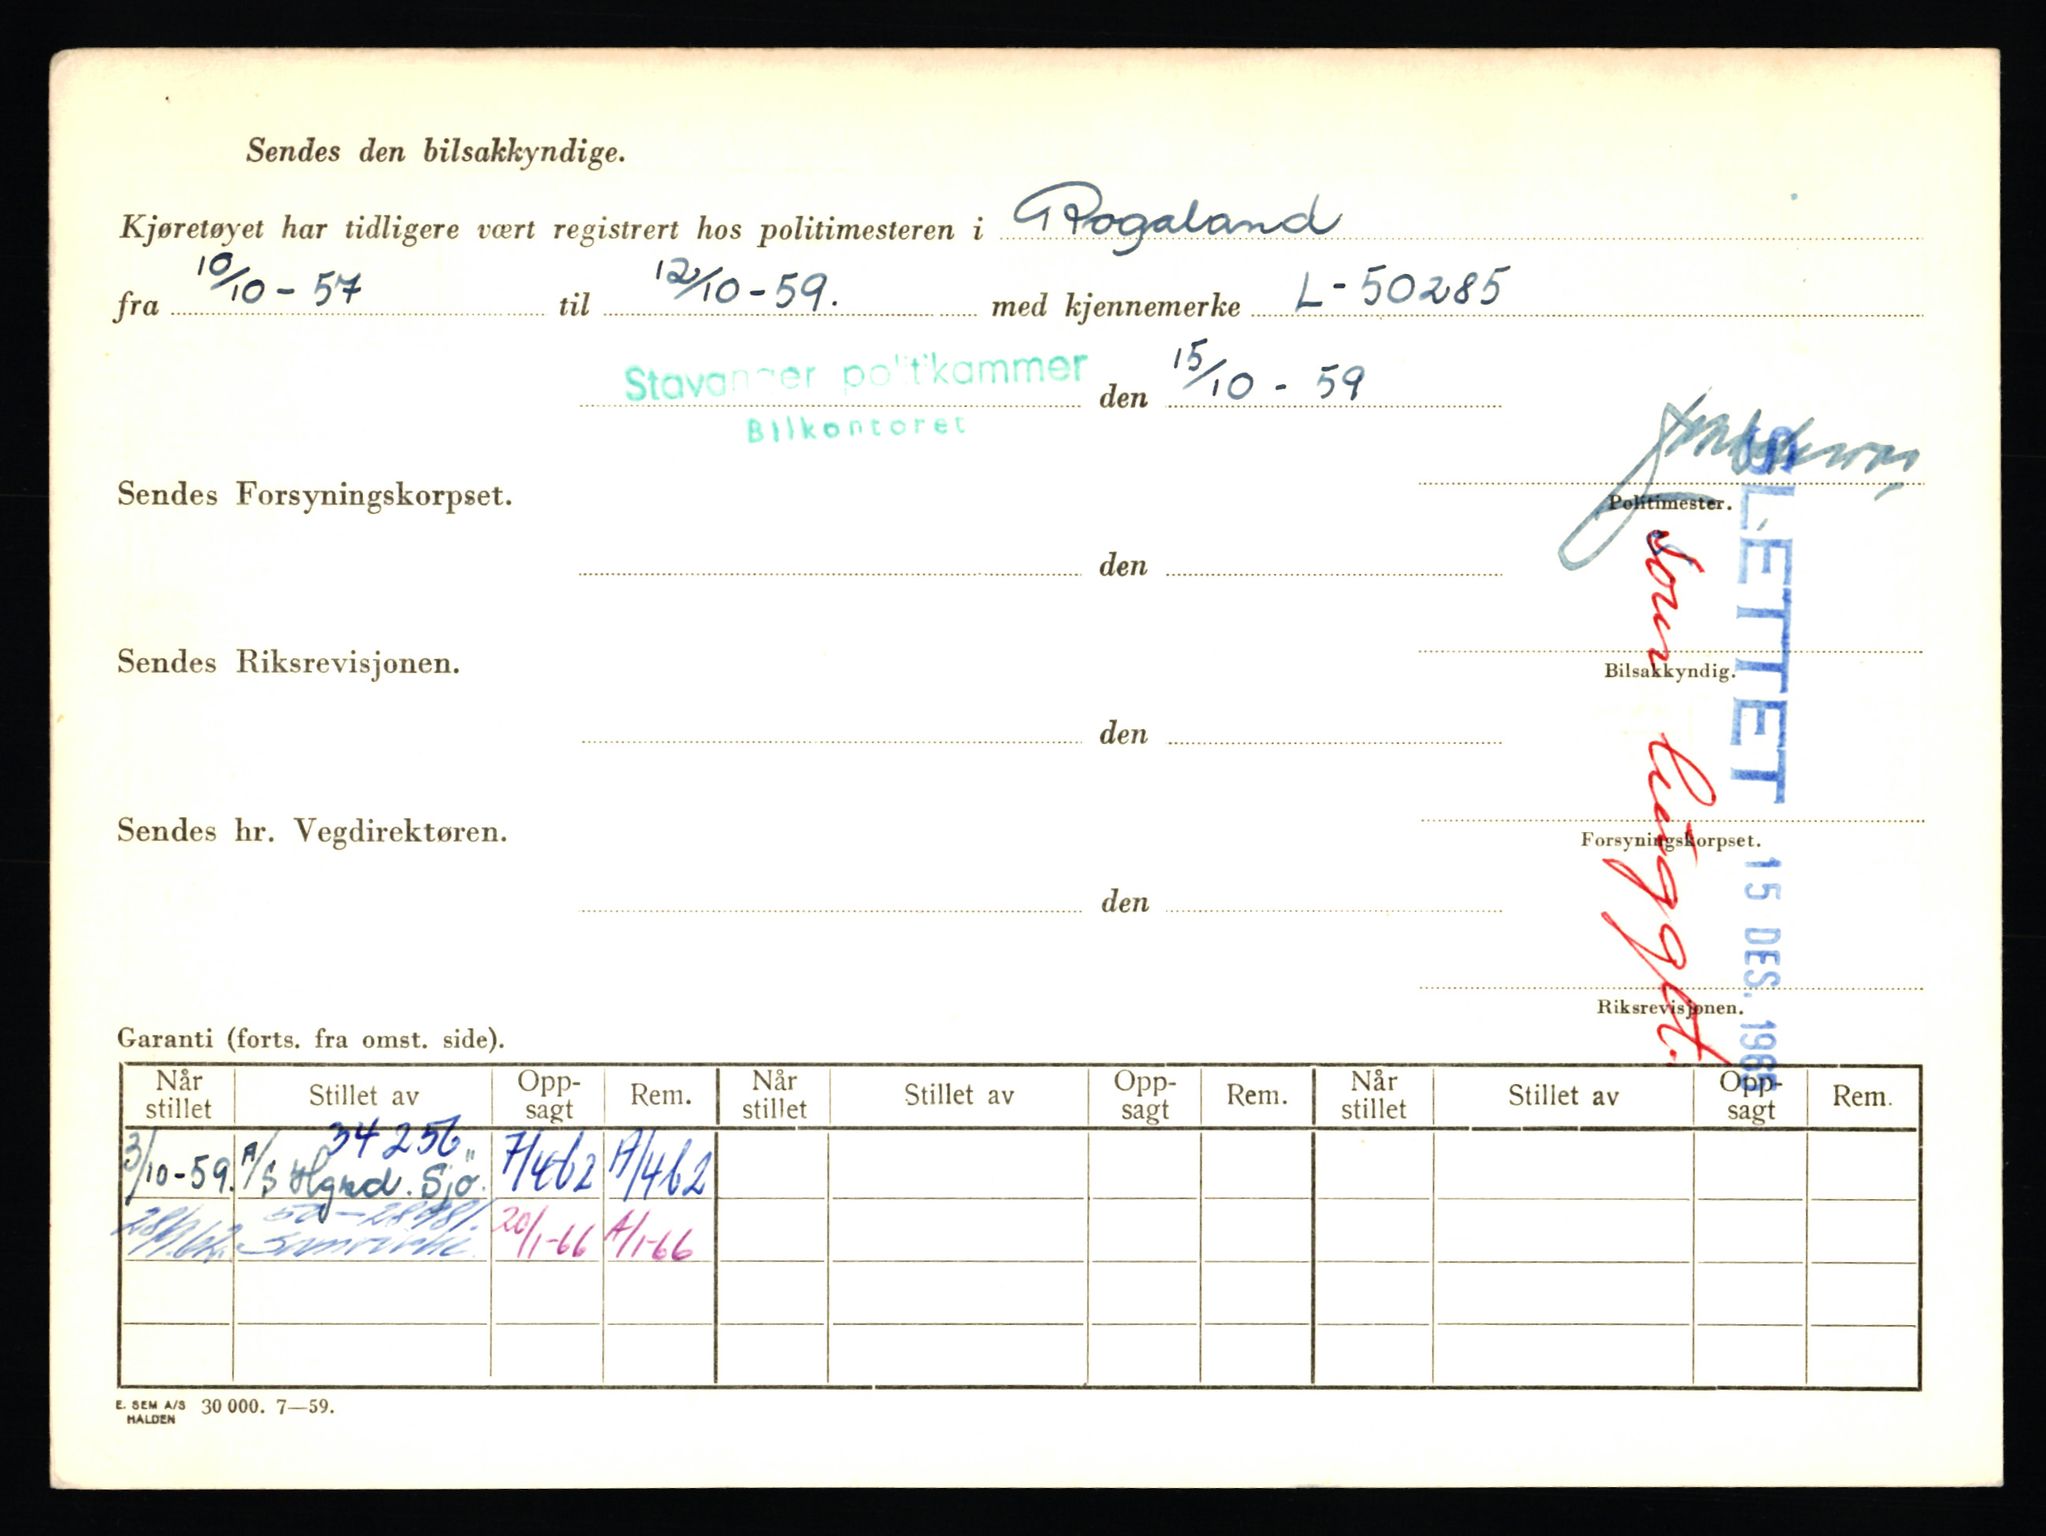 Sendes den bilsakkyndige.
Kjøretøyet har tidligere vært registrert hos politimesteren i Rogaland
fra 10/10-57 til 12/10-59. med kjennemerke L-50285
Stavanger politikammer den 15/10 - 59
Bilkontoret
Sendes Forsyningskorpset.
Politimester.
den
Sendes Riksrevisjonen.
Bilsakkyndig.
den
Sendes hr. Vegdirektøren.
Forsyningskorpset.
den
Riksrevisjonen.
SLETTET 15 DES. 1965
som huggt.
Garanti (forts. fra omst. side).
Når stillet Stillet av Opp-sagt Rem. Når stillet Stillet av Opp-sagt Rem. Når stillet Stillet av Opp-sagt Rem.
34256
3/10-59. A/S Hgnd. Sjö. 7/4-62 A/4 62
20/1-66 A/1-66
E. SEM A/S HALDEN 30 000. 7—59.